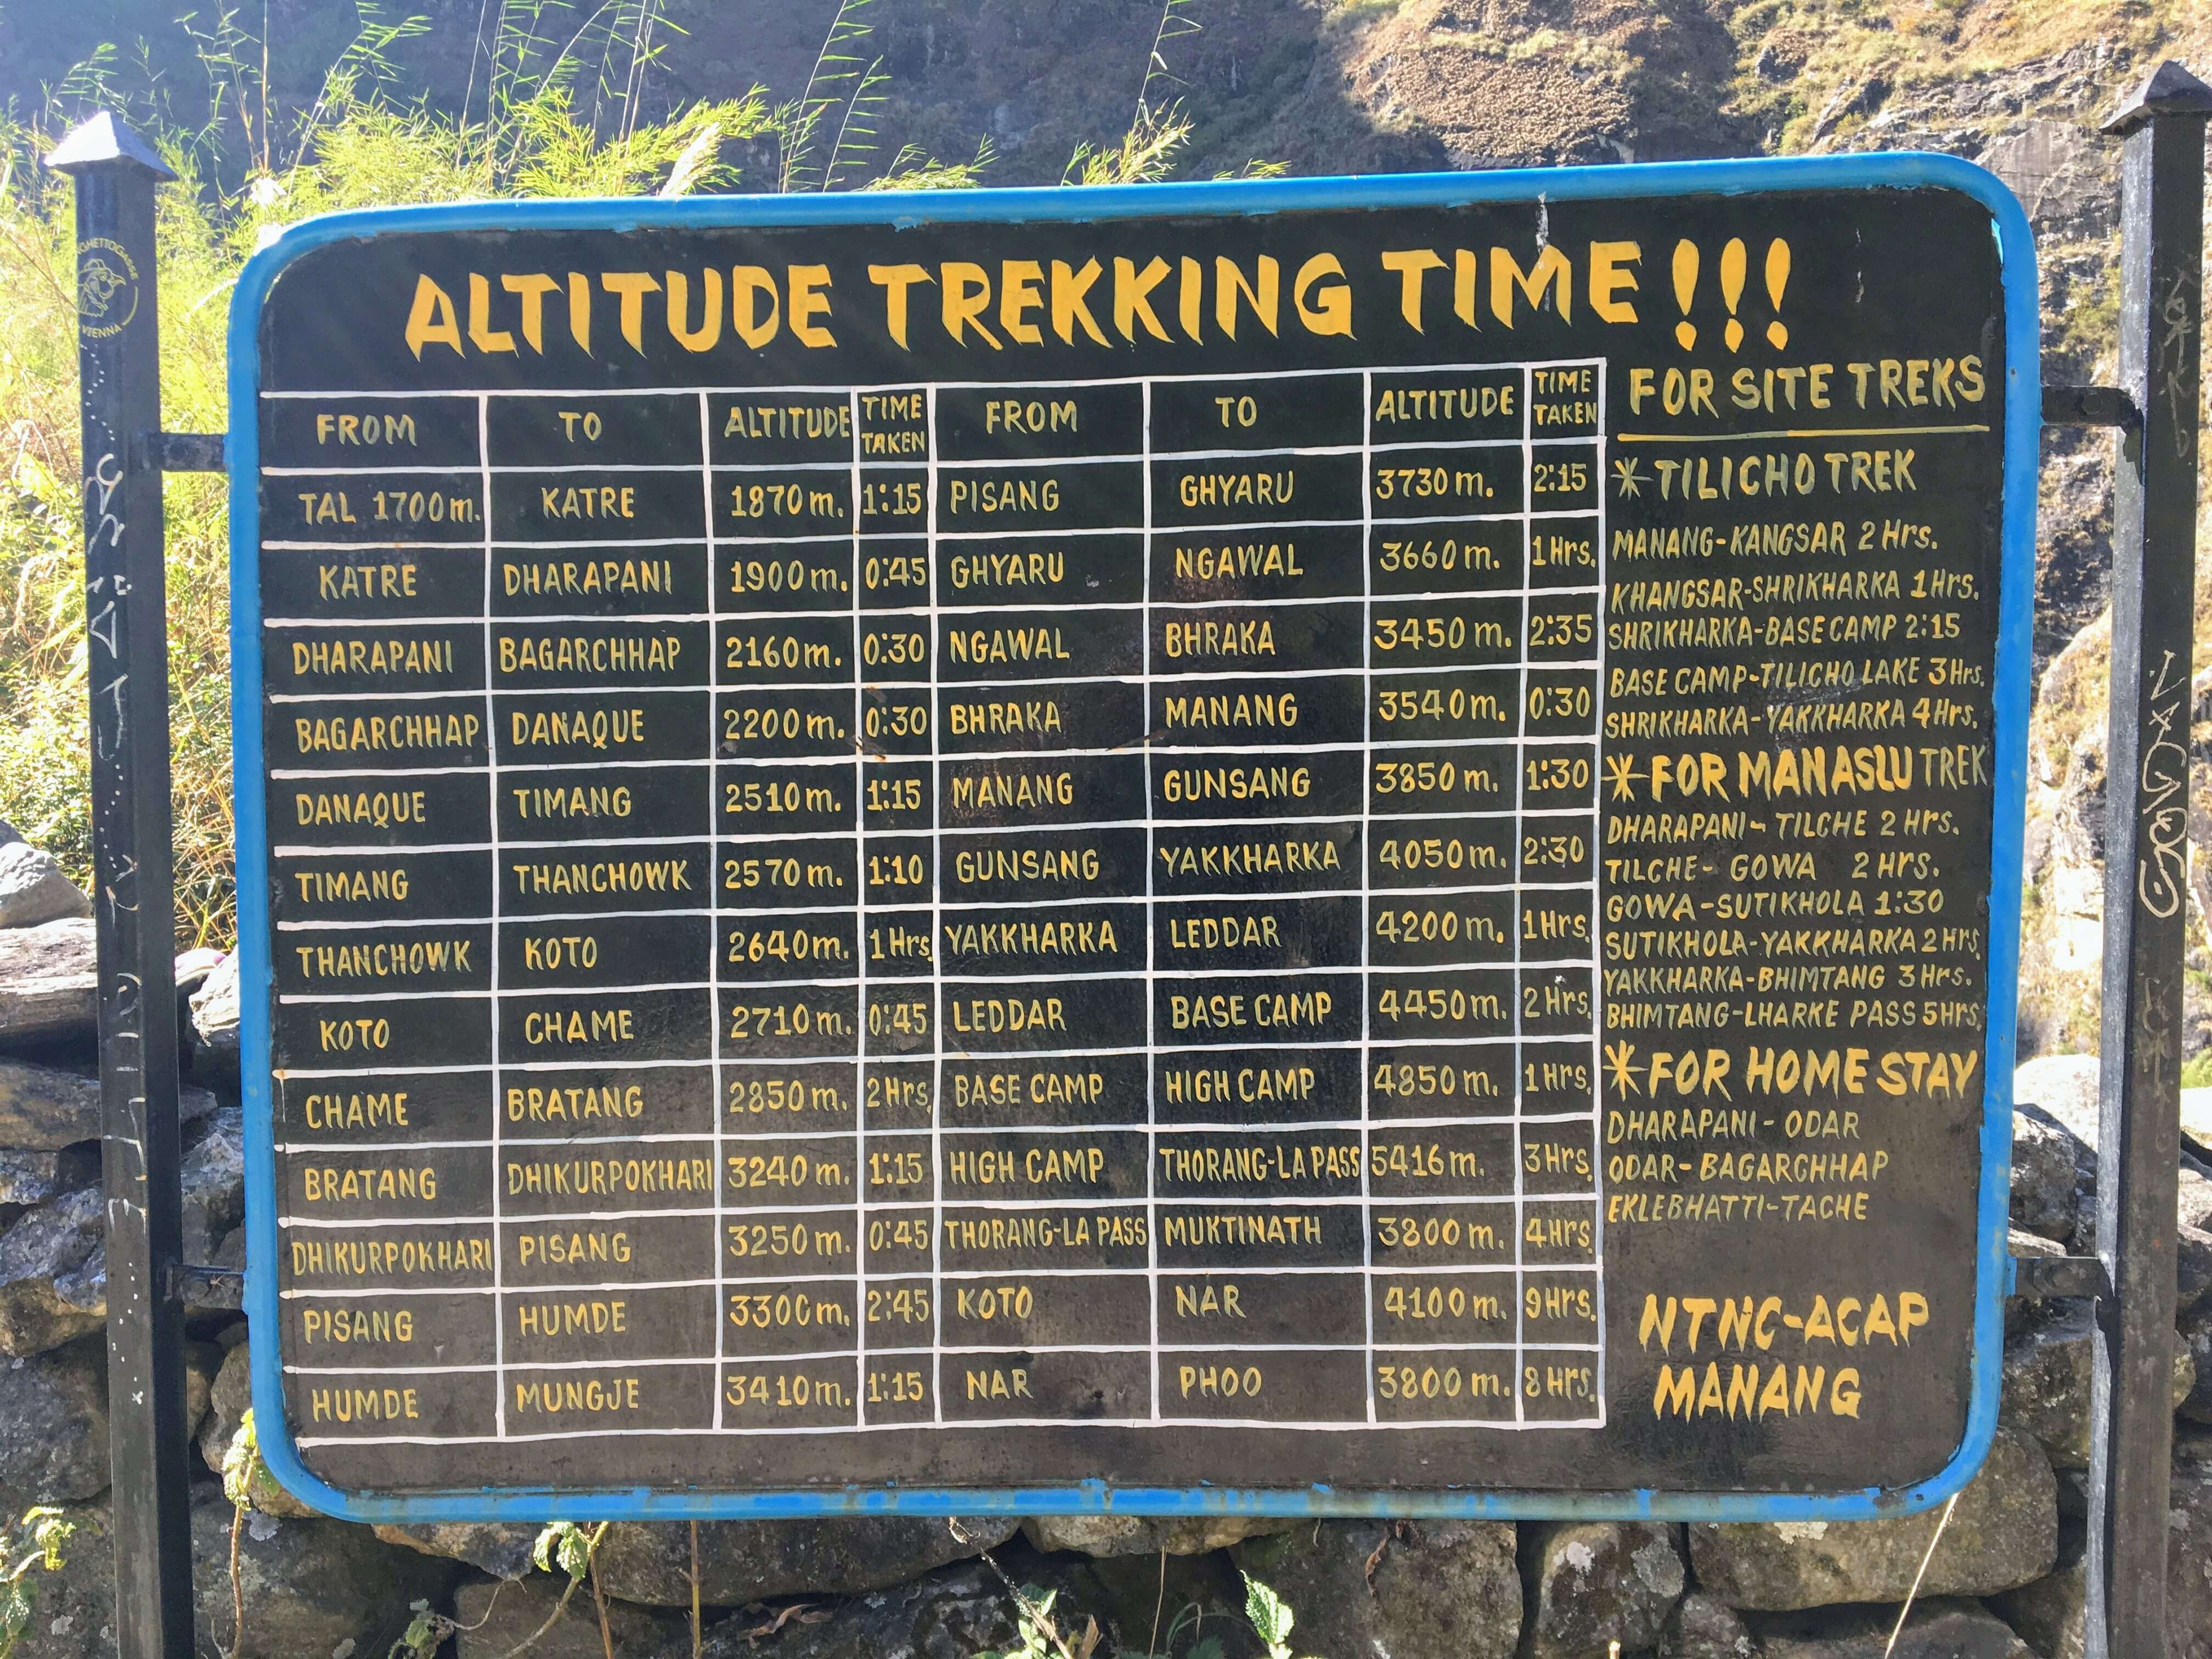 ALTITUDE TREKKING TIME!!!
FROM TO ALTITUDE TIME TAKEN FROM TO ALTITUDE TIME TAKEN
TAL 1700m. KATRE 1870m. 1:15 PISANG GHYARU 3730m. 2:15
KATRE DHARAPANI 1900m. 0:45 GHYARU NGAWAL 3660m. 1Hrs.
DHARAPANI BAGARCHHAP 2160m. 0:30 NGAWAL BHRAKA 3450m. 2:35
BAGARCHHAP DANAQUE 2200m. 0:30 BHRAKA MANANG 3540m. 0:30
DANAQUE TIMANG 2510m. 1:15 MANANG GUNSANG 3850m. 1:30
TIMANG THANCHOWK 2570m. 1:10 GUNSANG YAKKHARKA 4050m. 2:30
THANCHOWK KOTO 2640m. 1Hrs. YAKKHARKA LEDDAR 4200m. 1Hrs.
KOTO CHAME 2710m. 0:45 LEDDAR BASE CAMP 4450m. 2Hrs.
CHAME BRATANG 2850m. 2Hrs. BASE CAMP HIGH CAMP 4850m. 1Hrs.
BRATANG DHIKURPOKHARI 3240m. 1:15 HIGH CAMP THORANG-LA PASS 5416m. 3Hrs.
DHIKURPOKHARI PISANG 3250m. 0:45 THORANG-LA PASS MUKTINATH 3800m. 4Hrs.
PISANG HUMDE 3300m. 2:45 KOTO NAR 4100m. 9Hrs.
HUMDE MUNGJE 3410m. 1:15 NAR PHOO 3800m. 8Hrs.
FOR SITE TREKS
*TILICHO TREK
MANANG-KANGSAR 2Hrs.
KHANGSAR-SHRIKHARKA 1Hrs.
SHRIKHARKA-BASE CAMP 2:15
BASE CAMP-TILICHO LAKE 3Hrs.
SHRIKHARKA-YAKKHARKA 4Hrs.
*FOR MANASLU TREK
DHARAPANI- TILCHE 2 Hrs.
TILCHE- GOWA 2 Hrs.
GOWA-SUTIKHOLA 1:30
SUTIKHOLA-YAKKHARKA 2Hrs.
YAKKHARKA-BHIMTANG 3Hrs.
BHIMTANG-LHARKE PASS 5Hrs.
*FOR HOME STAY
DHARAPANI-ODAR
ODAR-BAGARCHHAP
EKLEBHATTI-TACHE
NTNC-ACAP
MANANG
VIENNA